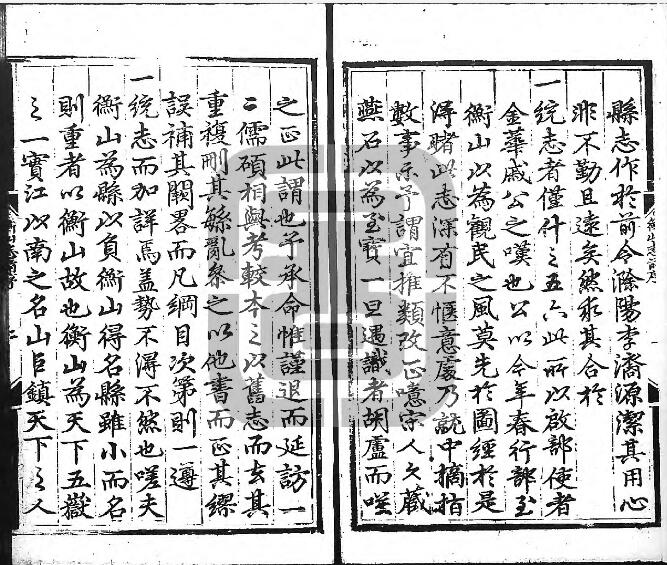 縣志作於前令滁陽李濬源潔其用心
非不勤且遠矣然求其合於
一統志者僅什之五六此所以啟部使者
金華戚公之嘆也公以今年春行部至
衡山以為觀民之風莫先於圖經於是
淂睹此志深有不愜意處乃就中摘指
數事示予謂宜推類改正噫宋人久蔵
燕石以為至寶一旦遇識者胡盧而咲
之正此謂也予承命惟謹退而延訪一
二儒碩相與考較本之以舊志而去其
重複刪其繇亂叅之以他書而正其繆
誤補其闕畧而凡綱目次第則一遵
一統志而加詳焉盖勢不淂不然也嗟夫
衡山為縣以負衡山得名縣雖小而名
則重者以衡山故也衡山為天下五嶽
之一實江以南之名山巨鎮天下之人